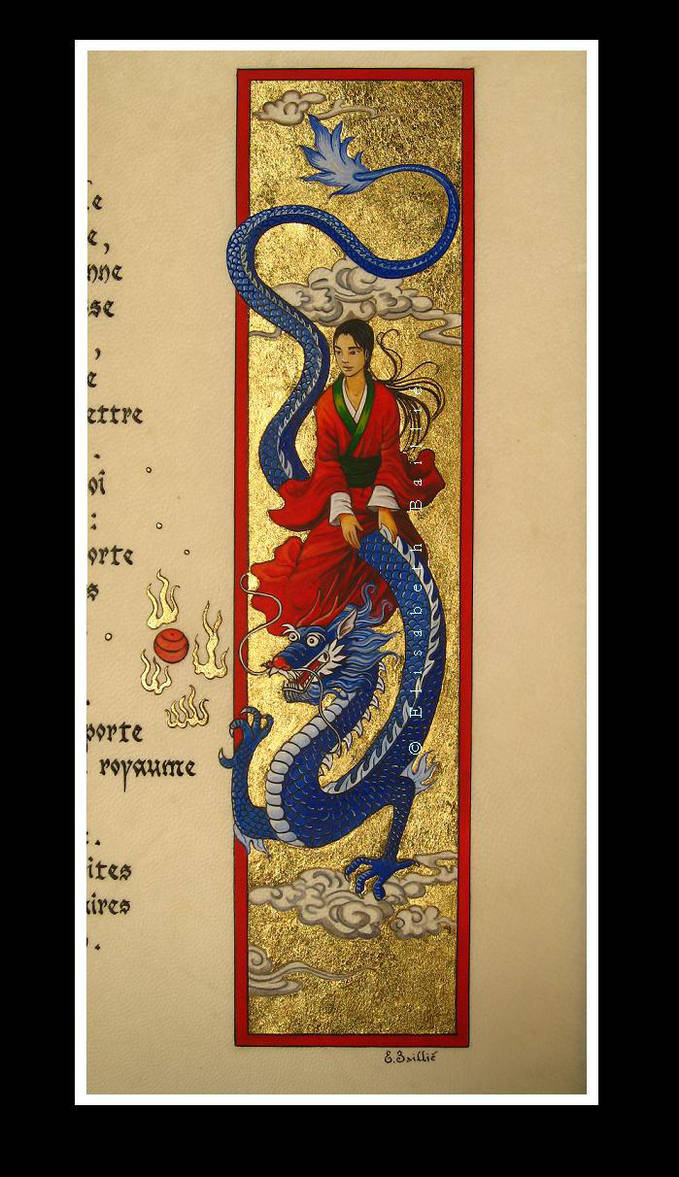 e,
nne
sse
,
e
ettre
.
oi
:
orte
s
.
porte
royaume
.
ites
aires
.
© Elisabeth Baillié
E. Baillié